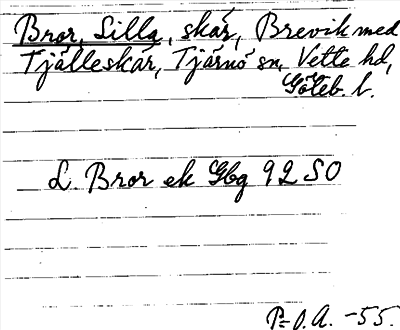 Bror, Lilla, skär, Brevik med
Tjälleskär, Tjärnö sn, Vette hd,
Göteb. l.
L. Bror ek Gbg 92 SO
P=O.A. -55.